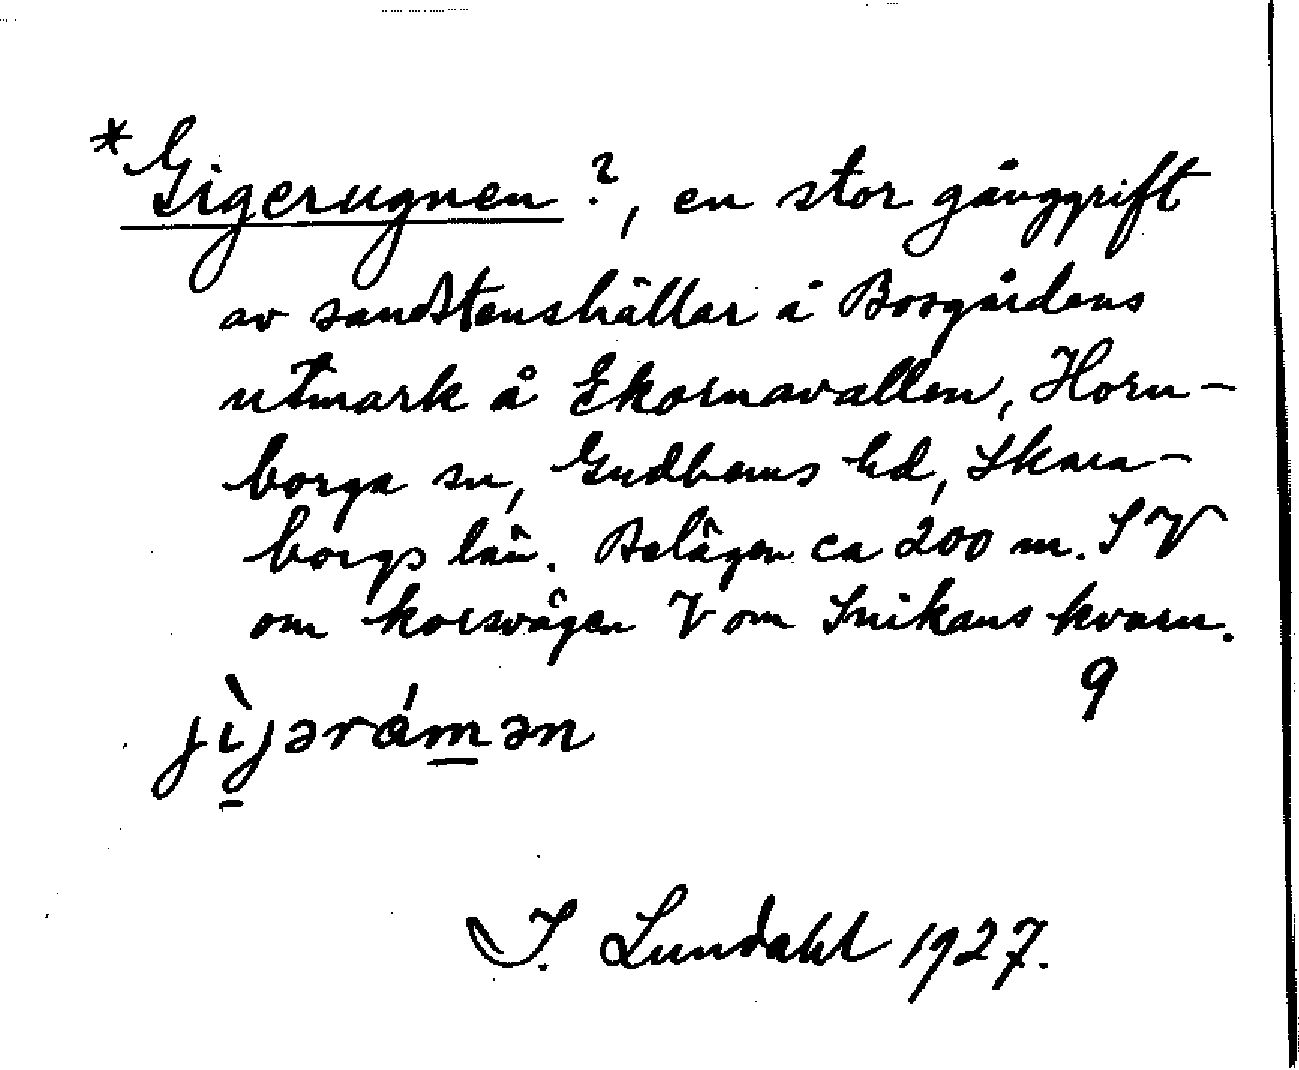 *Gigerugnen ?, en stor gånggrift
av sandstenshällar å Bosgårdens
utmark å Ekornavallen, Horn-
borga sn, Gudhems hd, Skara-
borgs län. Belägen ca 200 m. SV
om korsvägen V om Snikans kvarn.
9
jìjərámən
I. Lundahl 1927.